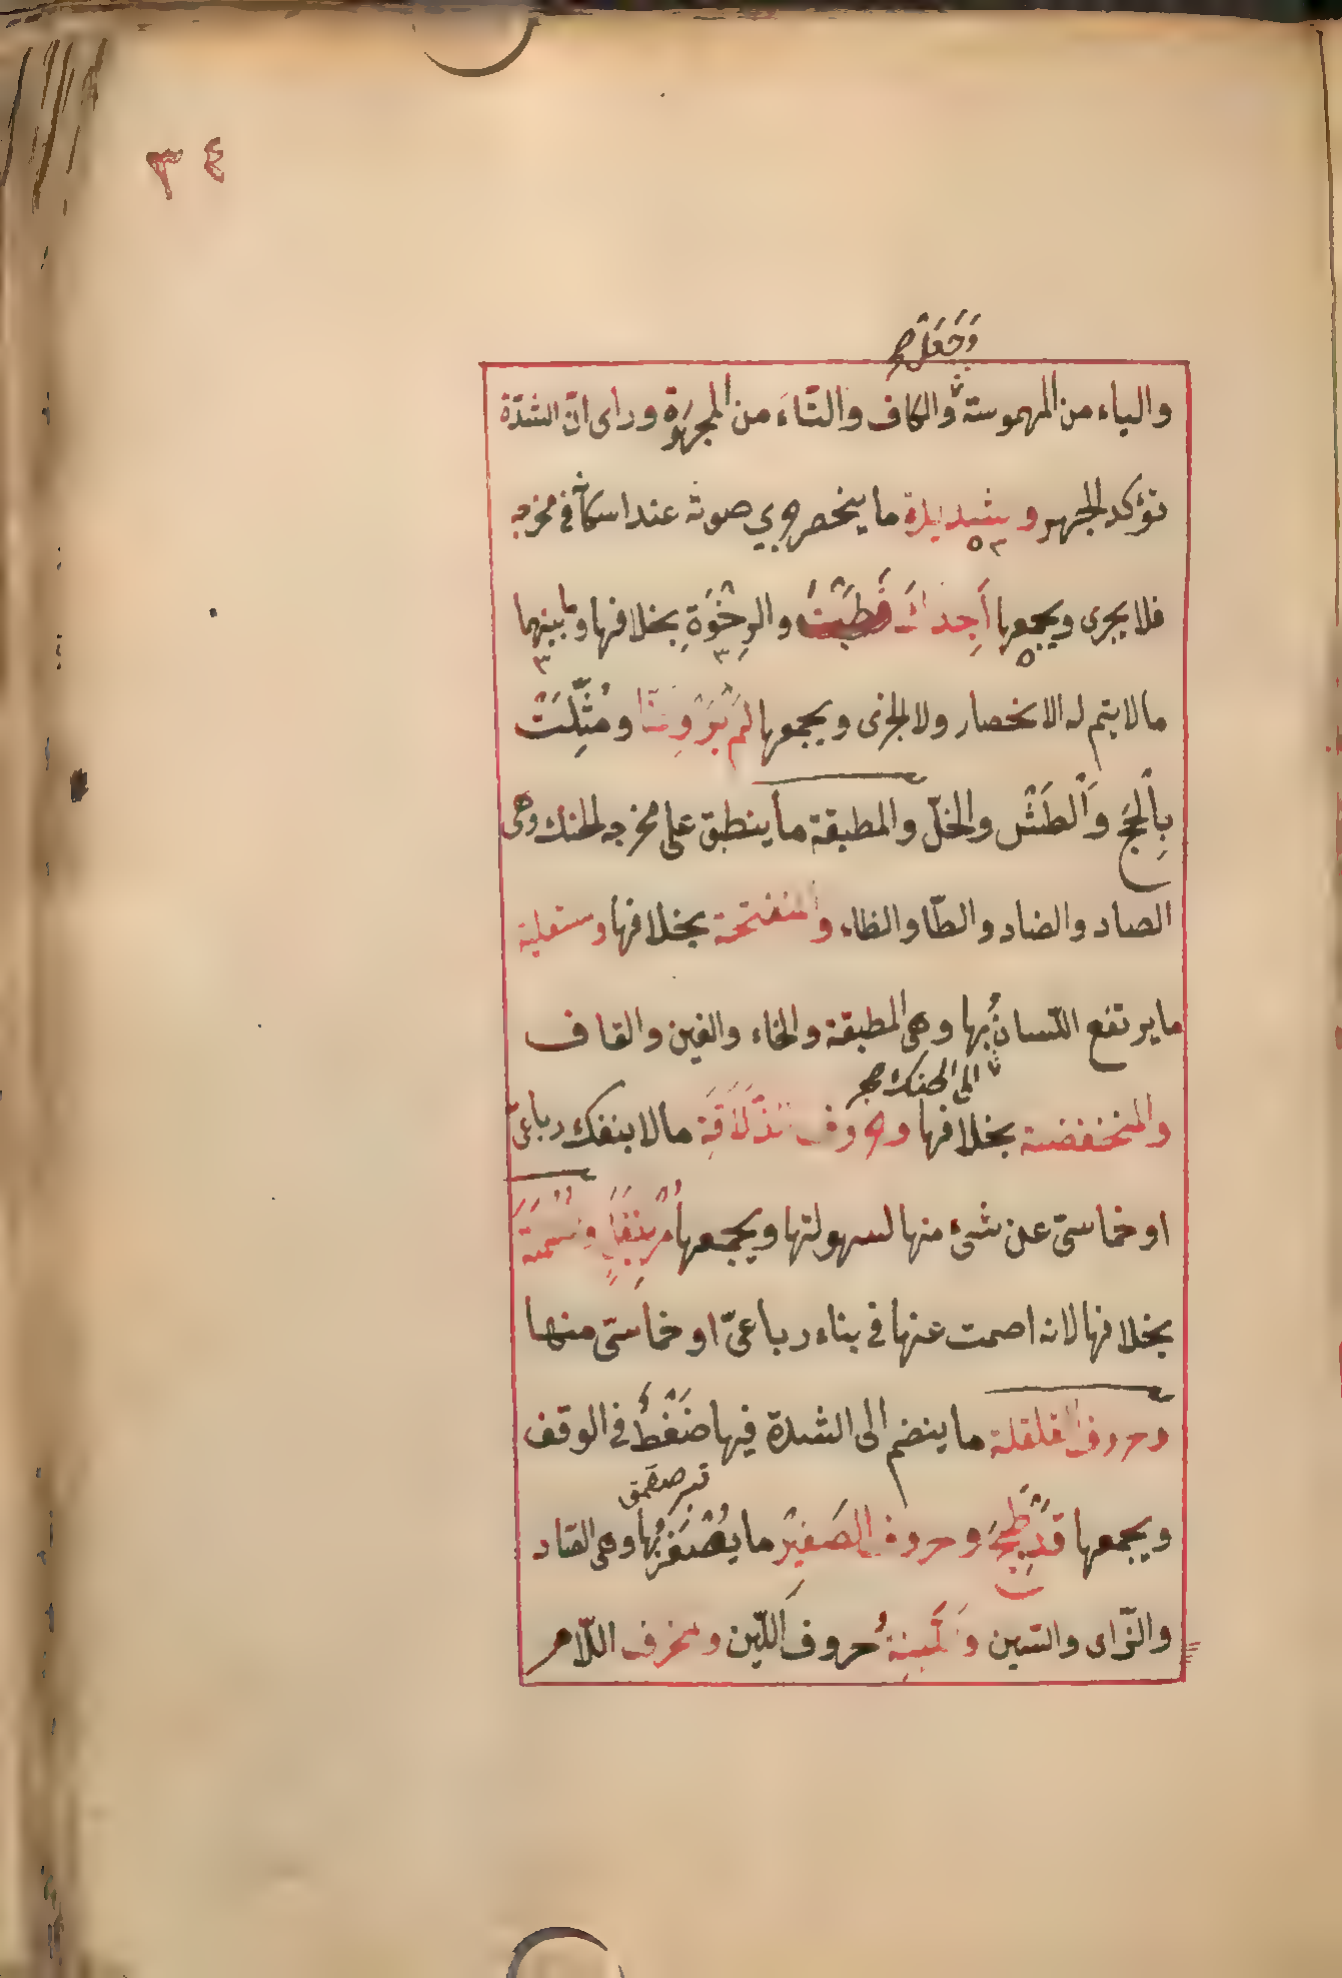 ٣٤
وَجَعَلَ صح
والياء من المهموسة والكاف والتاءَ من المجهورة ورأى انّ الشدّة
تؤكد الجهر وشديدة ما ينحصر جري صوته عند اسكانه فى مخرجه
فلا يجرى ويجمعها اَجِدُكَ قَطَبْتَ والرِخْوَةِ بخلافها وما بينهما
ما لا يتم له الانحصار ولا الجرى ويجمعها لَمْ يَرْوِعَنَّا ومُثِّلَتْ
بِاَلْحَجّ وَاَلْطَشْ والخلّ والمطبقة ما ينطبق على مخرجه الحنك وهى
الصاد والضاد والطّا والظاء والمنفتحة بخلافها ومستعلية
ما يرتفع اللّسانُ بها وهى المطبقة والخاء والغين والقاف
الى الحنك صح
والمنخفضة بخلافها وحروف الذّلَاقَةِ ما لا ينفك رباعىّ
او خماسىّ عن شىء منها لسهولتها ويجمعها مُرْبِنَفَلٍ وَمُصْمَتَة
بخلافها لانه اصمت عنها فى بناء رباعىّ او خماسىّ منها
وحروف القلقلة ما ينضم الى الشدة فيها ضَغْطٌ فى الوقف
ويجمعها قَدْ طُبِجَ وحروف الصَفيْر ما يُصْفَرُ بها وهى الصّاد
والزّاى والسّين وَالْلَيِّنِةُ حروف اَللّين ومنحرف اللّام